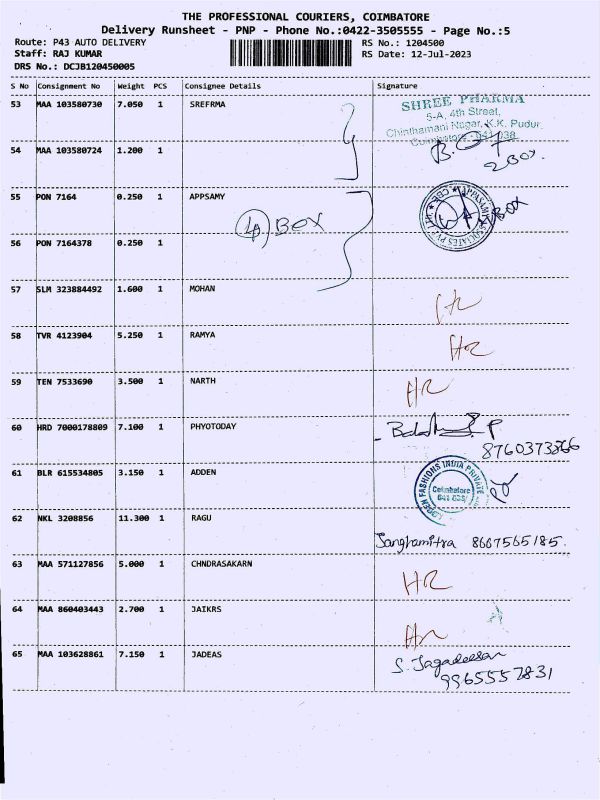 THE PROFESSIONAL COURIERS, COIMBATORE
Delivery Runsheet - PNP - Phone No.:0422-3505555 - Page No.:5
Route: P43 AUTO DELIVERY RS No.: 1204500
Staff: RAJ KUMAR RS Date: 12-Jul-2023
DRS No.: DCJB120450005
S No Consignment No Weight PCS Consignee Details Signature
53 MAA 103580730 7.050 1 SREFRMA
SHREE PHARMA
5-A, 4th Street,
Chinthamani Nagar, K.K. Pudur,
Coimbatore - 641 038
54 MAA 103580724 1.200 1
2 BOX.
55 PON 7164 0.250 1 APPSAMY
4 BOX
BOX
56 PON 7164378 0.250 1
57 SLM 323884492 1.600 1 MOHAN
58 TVR 4123904 5.250 1 RAMYA
HR
59 TEN 7533690 3.500 1 NARTH
HR
60 HRD 7000178809 7.100 1 PHYOTODAY
P
61 BLR 615534805 3.150 1 ADDEN
FASHIONS INDIA PRIVATE
Coimbatore
62 NKL 3208856 11.300 1 RAGU
Sanghamitra 8667565185.
63 MAA 571127856 5.000 1 CHNDRASAKARN
HR
64 MAA 860403443 2.700 1 JAIKRS
65 MAA 103628861 7.150 1 JADEAS
S. Jagadeesan
9965557831